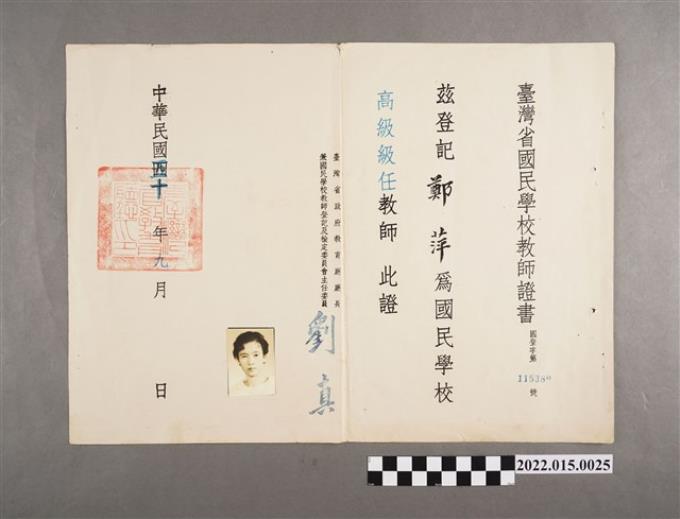 臺灣省國民學校教師證書
國登字第
115380
號
茲登記鄭萍為國民學校
高級級任教師 此證
臺灣省政府教育廳廳長
兼國民學校教師登記及檢定委員會主任委員
劉真
中華民國四十年九月 日
2022.015.0025